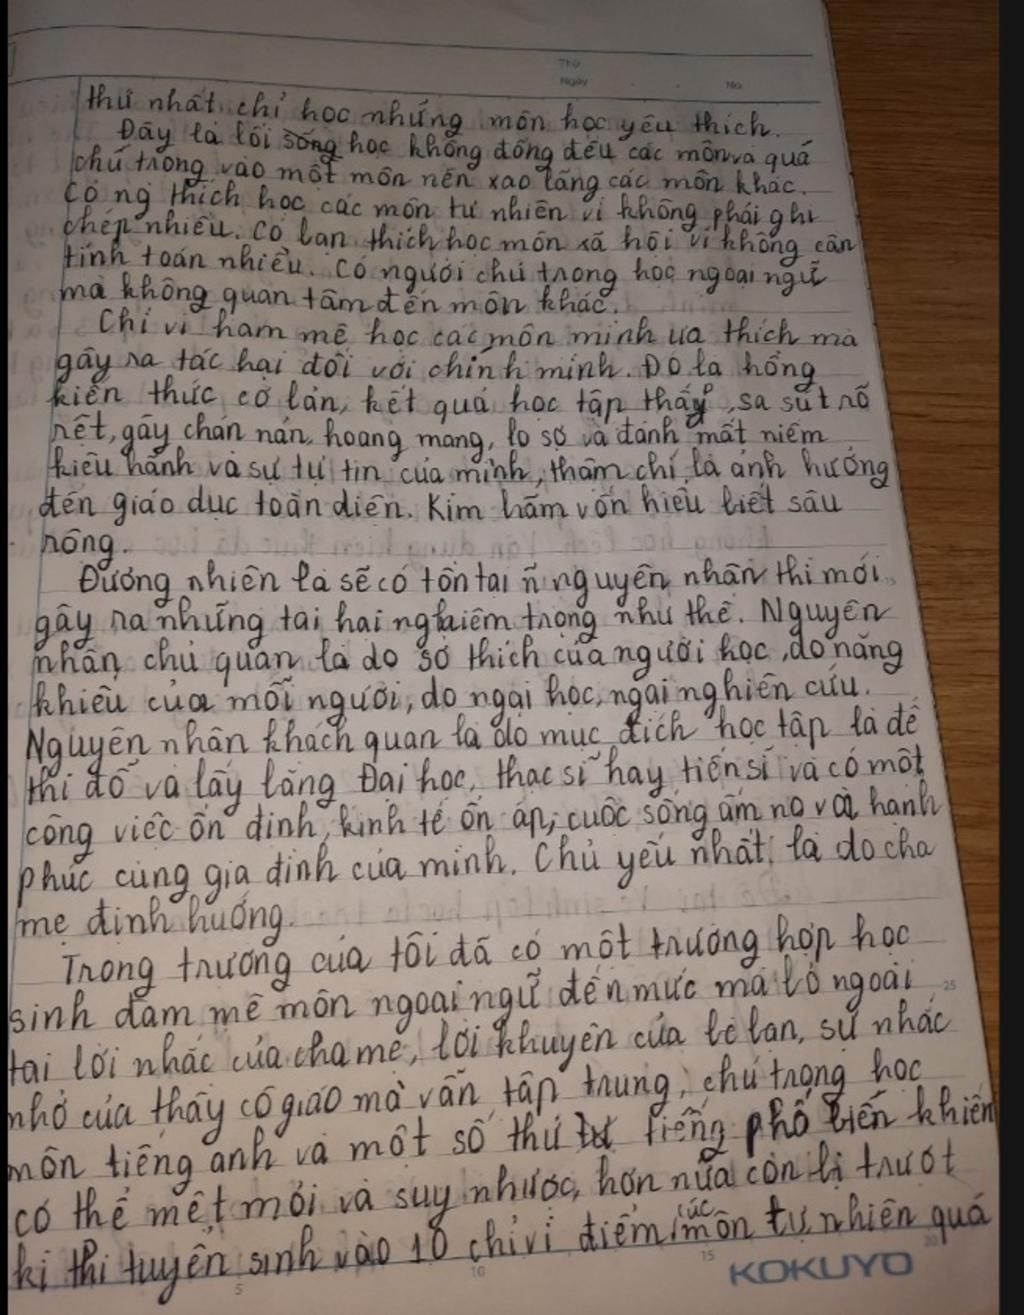 Thứ
Ngày
No.
thứ nhất chỉ học những môn học yêu thích.
Đây là lối sống học không đồng đều các môn và quá
chú trọng vào một môn nên xao lãng các môn khác.
Có ng thích học các môn tự nhiên vì không phải ghi
chép nhiều. Có bạn thích học môn xã hội vì không cần
tính toán nhiều. Có người chú trọng học ngoại ngữ
mà không quan tâm đến môn khác.
Chỉ vì ham mê học các môn mình ưa thích mà
gây ra tác hại đối với chính mình. Đó là hổng
kiến thức cơ bản, kết quả học tập thấp, sa sút rõ
rệt, gây chán nản, hoang mang, lo sợ và đánh mất niềm
kiêu hãnh và sự tự tin của mình, thậm chí là ảnh hưởng
đến giáo dục toàn diện. Kìm hãm vốn hiểu biết sâu
rộng.
Đương nhiên là sẽ có tồn tại n~ nguyên nhân thì mới
gây ra những tai hại nghiêm trọng như thế. Nguyên
nhân chủ quan là do sở thích của người học, do năng
khiếu của mỗi người, do ngại học, ngại nghiên cứu.
Nguyên nhân khách quan là do mục đích học tập là để
thi đỗ và lấy bằng Đại học, thạc sĩ hay tiến sĩ và có một
công việc ổn định, kinh tế ổn áp, cuộc sống ấm no và hạnh
phúc cùng gia đình của mình. Chủ yếu nhất là do cha
mẹ định hướng.
Trong trường của tôi đã có một trường hợp học
sinh đam mê môn ngoại ngữ đến mức mà bỏ ngoài
tai lời nhắc của cha mẹ, lời khuyên của bè bạn, sự nhắc
nhở của thầy cô giáo mà vẫn tập trung, chú trọng học
môn tiếng anh và một số thứ tiếng phổ biến khiến
cơ thể mệt mỏi và suy nhược, hơn nữa còn bị trượt
kì thi tuyển sinh vào 10 chỉ vì điểm các môn tự nhiên quá
5 10 15 20 25
KOKUYO